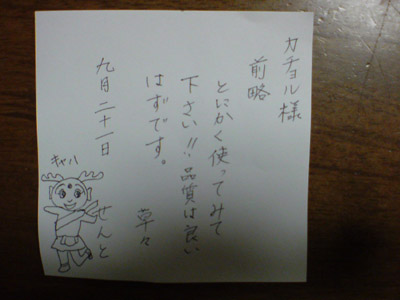 カチョル様
前略
とにかく使ってみて
下さい!!品質は良い
はずです。
草々
九月二十一日
せんと
キャハ